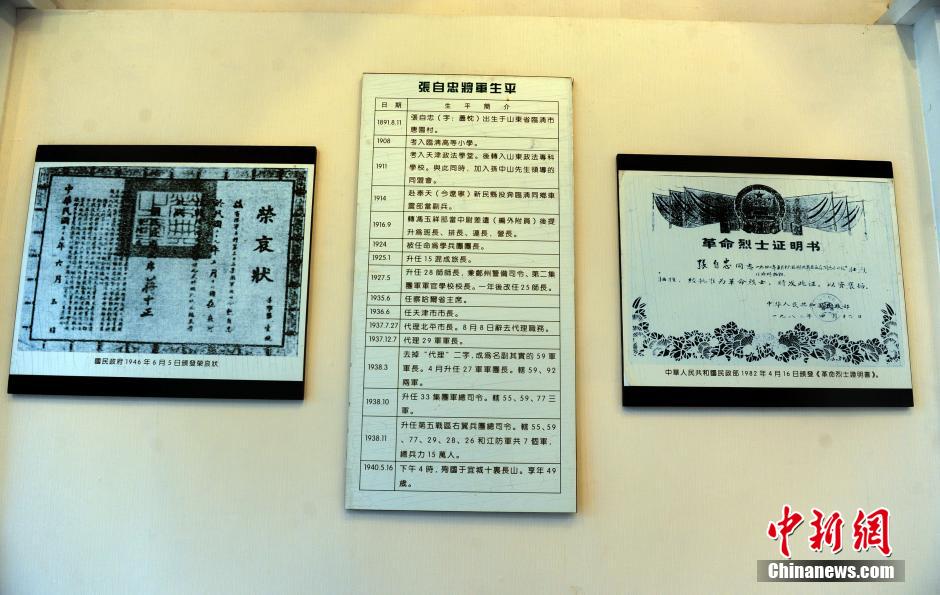 張自忠將軍生平
日期 生平簡介
1891.8.11 張自忠（字：藎忱）出生于山東省臨清市
唐園村。
1908 考入臨清高等小學。
1911 考入天津政法學堂。後轉入山東政法專科
學校。與此同時，加入孫中山先生領導的
同盟會。
1914 赴奉天（今遼寧）新民縣投奔臨清同鄉車
震部當副兵。
1916.9 轉馮玉祥部當中尉差遣（編外附員）後提
升爲班長、排長、連長、營長。
1924 被任命爲學兵團團長。
1925.1 升任15混成旅長。
1927.5 升任28師師長，兼鄭州警備司令、第二集
團軍軍官學校校長。一年後改任25師長。
1935.6 任察哈爾省主席。
1936.6 任天津市市長。
1937.7.27 代理北平市長。8月8日辭去代理職務。
1937.12.7 代理29軍軍長。
1938.3 去掉“代理”二字，成爲名副其實的59軍
軍長。4月升任27軍軍團長。轄59、92
兩軍。
1938.10 升任33集團軍總司令。轄55、59、77三
軍。
1938.11 升任第五戰區右翼兵團總司令。轄55、59
、77、29、28、26和江防軍共7個軍，
總兵力15萬人。
1940.5.16 下午4時，殉國于宜城十裏長山。享年49
歲。
榮哀狀
中華民國 年六月五日
席蔣中正
國民政府1946年6月5日頒發榮哀狀
革命烈士证明书
张自忠同志
经批准为革命烈士。特发此证，以资褒扬。
中华人民共和国民政部
一九八二年四月十六日
中華人民共和國民政部1982年4月16日頒發《革命烈士證明書》。
中新網
Chinanews.com